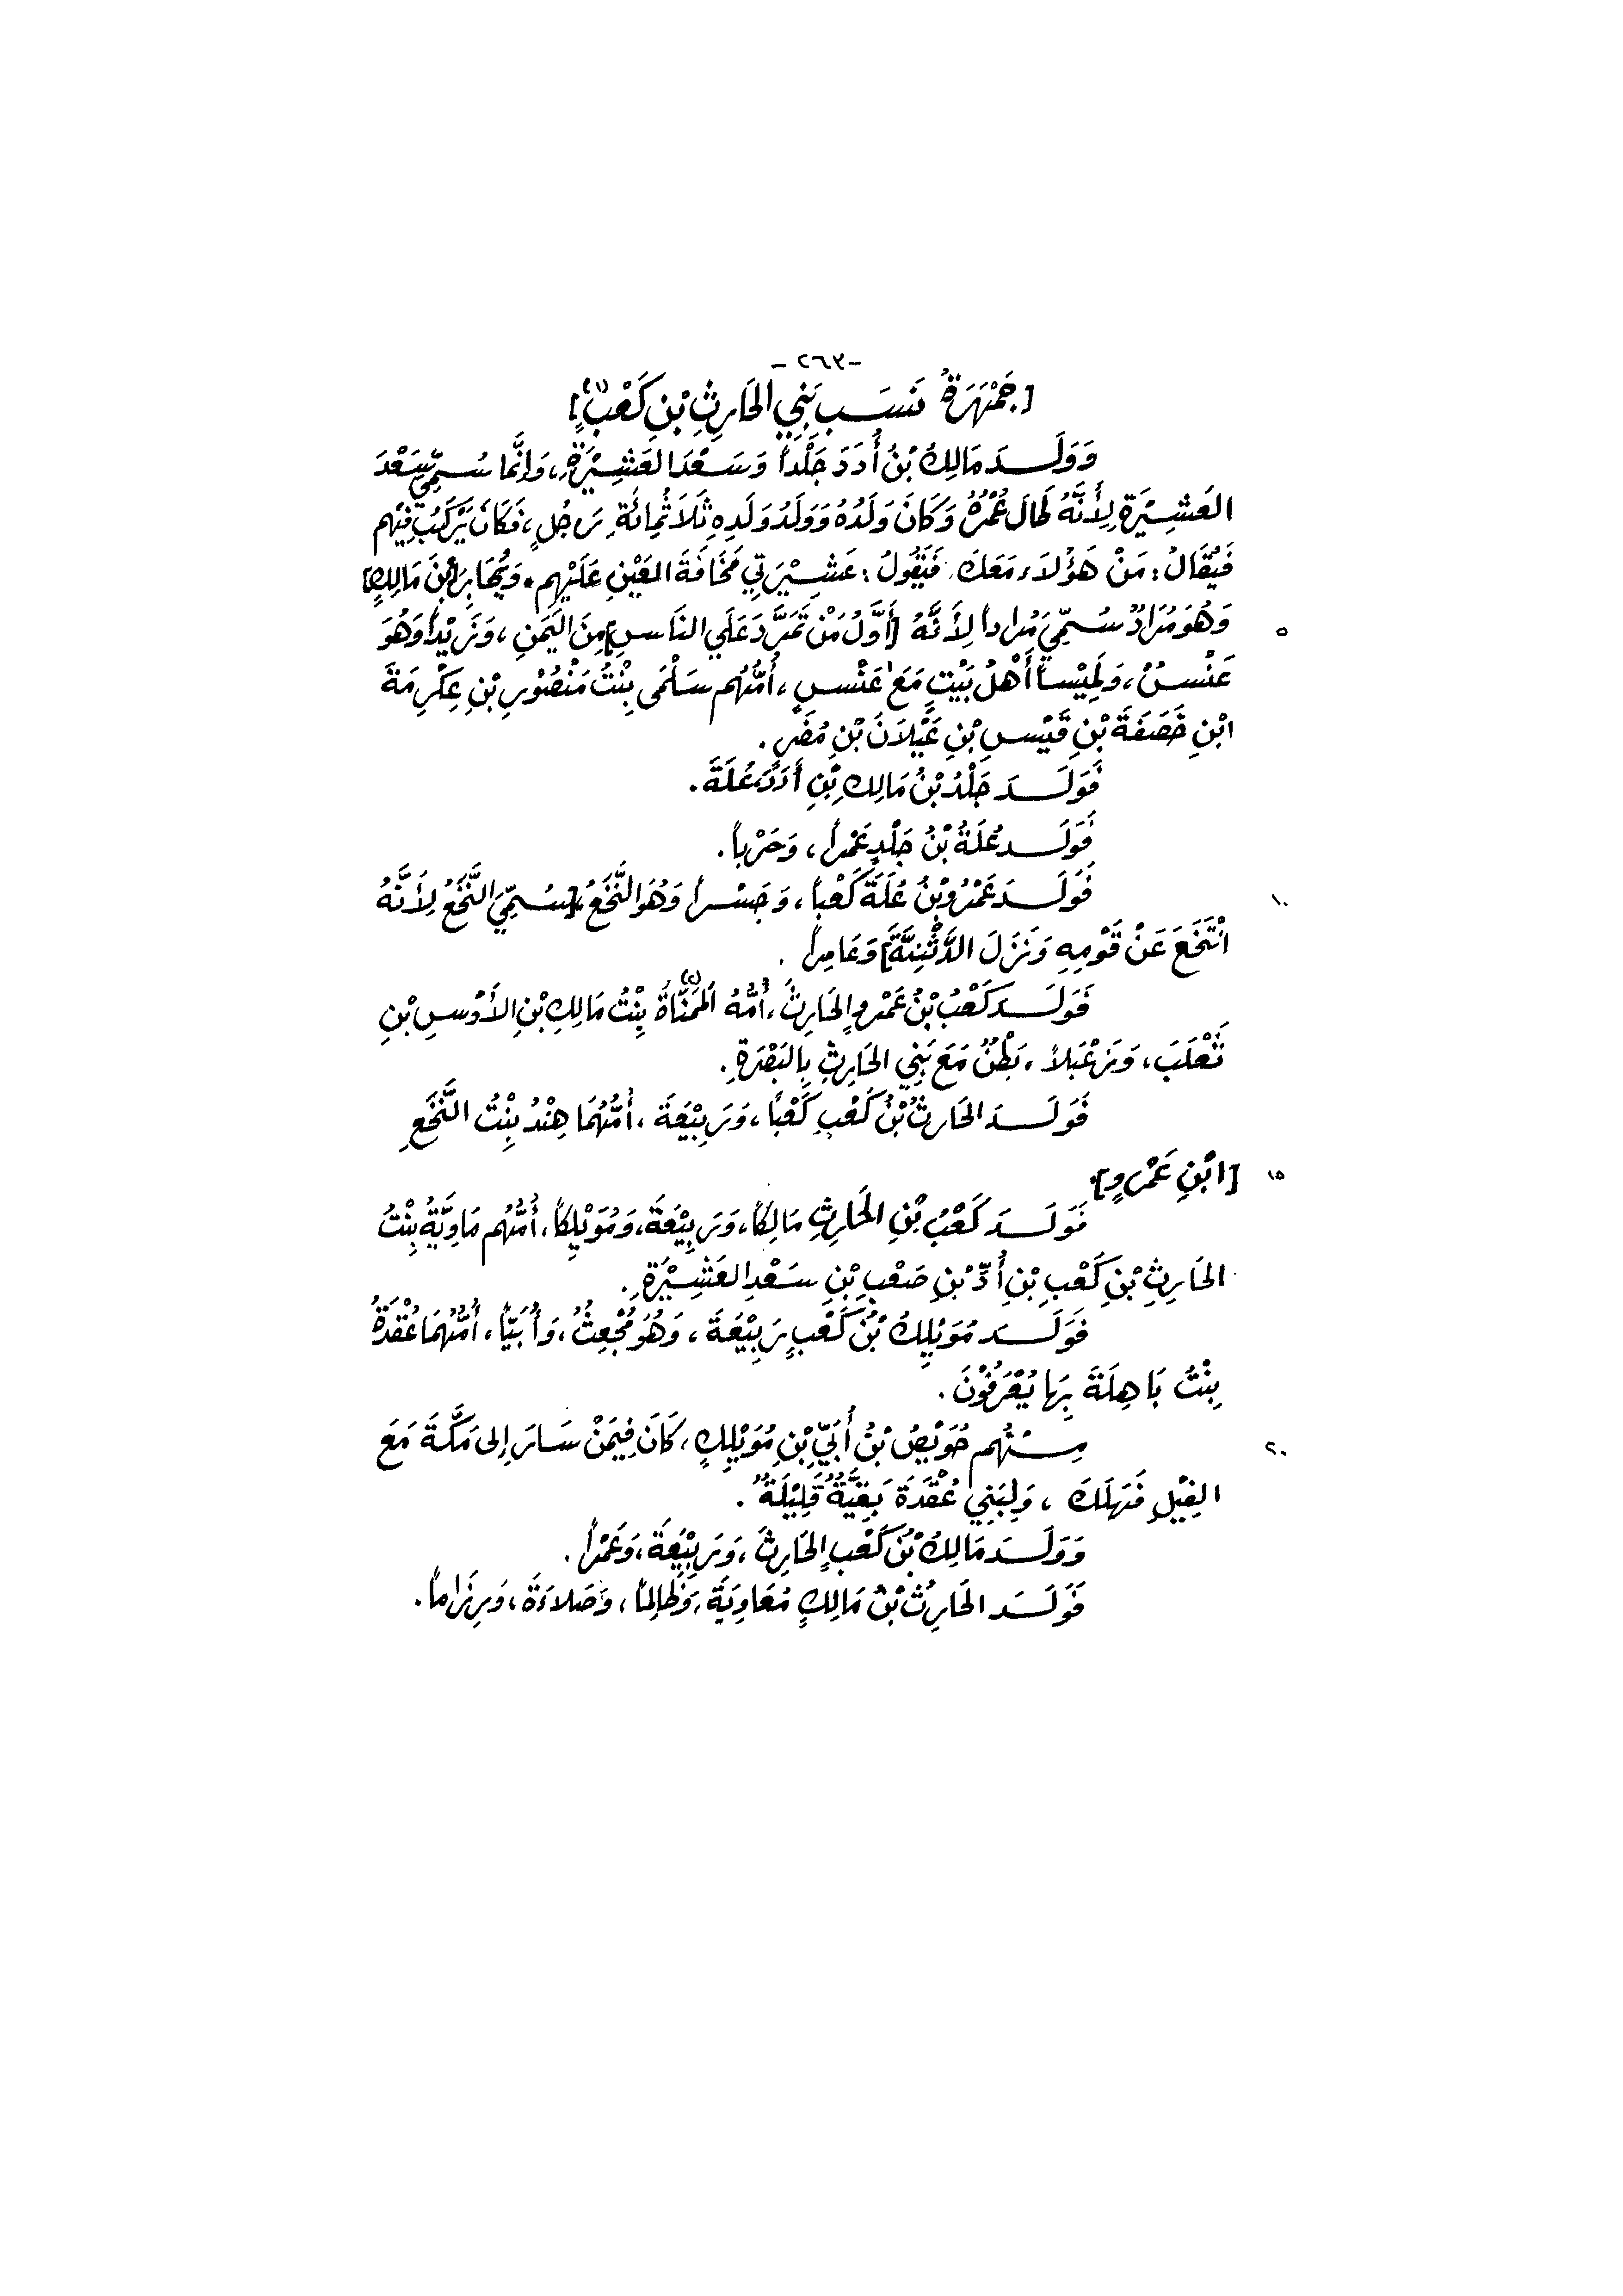 -٢٦٣-
[جَمْهَرَةُ نَسَبِ بَنِي الحَارِثِ بْنِ كَعْبٍ](١)
وَوَلَدَ مَالِكُ بْنُ أُدَدَ جَلْداً وَسَعْدَ العَشِيْرَةِ، وَإنَّما سُمِّيَ سَعْدَ
العَشِيْرَةِ لِأَنَّهُ طَالَ عُمْرُهُ وَكَانَ وَلَدُهُ وَوَلَدُ وَلَدِهِ ثَلَاثُمِائَةِ رَجُلٍ، فَكَانَ يَرْكَبُ فِيْهِم
فَيُقَالُ: مَنْ هَؤُلَاءِ مَعَكَ، فَيَقُولُ: عَشِيْرَتِي مَخَافَةَ العَيْنِ عَلَيْهِم. وَيُحَابِرَ[بْنَ مَالِكٍ]
٥ وَهُوَ مُرَادٌ سُمِّيَ مُرَاداً لِأَنَّهُ [أَوَّلُ مَنْ تَمَرَّدَ عَلَى النَاسِ] مِنَ اليَمَنِ، وَزَيْداً وَهُوَ
عَنْسٌ، وَلَمِيْساً أَهْلُ بَيْتٍ مَعَ عَنْسٍ، أُمُّهُم سَلْمَى بِنْتُ مَنْصُوْرِ بْنِ عِكْرِمَةَ
ابْنِ خَصَفَةَ بْنِ قَيْسِ بْنِ عَيْلَانَ بْنِ مُضَرَ.
فَوَلَدَ جَلْدُ بْنُ مَالِكِ بْنِ أُدَدَ عُلَةَ.
فَوَلَدَ عُلَةُ بْنُ جَلْدٍ عَمْراً، وَحَرْباً.
١٠ فَوَلَدَ عَمْرُو بْنُ عُلَةَ كَعْباً، وَجَسْراً وَهُوَ النَّخَعُ، [سُمِّيَ النَّخَعُ لِأَنَّهُ
انْتَخَعَ عَنْ قَوْمِهِ وَنَزَلَ الدَّثْنِيَّةَ] وَعَامِراً.
فَوَلَدَ كَعْبُ بْنُ عَمْرٍو الحَارِثَ، أُمُّهُ المَمَنَّاةُ(٢) بِنْتُ مَالِكِ بْنِ الأَوْسِ بْنِ
تَغْلَبَ، وَزَعْبَلاً، بَطْنٌ مَعَ بَنِي الحَارِثِ بِالبَصْرَةِ.
فَوَلَدَ الحَارِثُ بْنُ كَعْبٍ كَعْباً، وَرَبِيْعَةَ، أُمُّهُمَا هِنْدُ بِنْتُ النَّخَعِ
١٥ [ابْنِ عَمْرٍو].
فَوَلَدَ كَعْبُ بْنِ الحَارِثِ مَالِكاً، وَرَبِيْعَةَ، وَمُوَيْلِكاً، أُمُّهُم مَاوِيَّةُ بِنْتُ
الحَارِثِ بْنِ كَعْبِ بْنِ أُدِّ بْنِ صَعْبِ بْنِ سَعْدِ العَشِيْرَةِ.
فَوَلَدَ مُوَيْلِكُ بْنُ كَعْبٍ رَبِيْعَةَ، وَهُوَ مُجْعِثٌ، وَأُبَيّاً، أُمُّهُمَا عُقْدَةُ
بِنْتُ بَاهِلَةَ بِهَا يُعْرَفُوْنَ.
٢٠ مِنْهُم حُوَيْصُ بْنُ أُبَيِّ بْنِ مُوَيْلِكٍ، كَانَ فِيمَنْ سَارَ إلى مَكَّةَ مَعَ
الفِيْلِ فَهَلَكَ، وَلِبَنِي عُقْدَةَ بَقِيَّةٌ قَلِيْلَةٌ.
وَوَلَدَ مَالِكُ بْنُ كَعْبٍ الحَارِثَ، وَرَبِيْعَةَ، وَعَمْراً.
فَوَلَدَ الحَارِثُ بْنُ مَالِكٍ مُعَاوِيَةَ، وَظَالِماً، وَصَلاءَةَ، وَرِزَاماً.